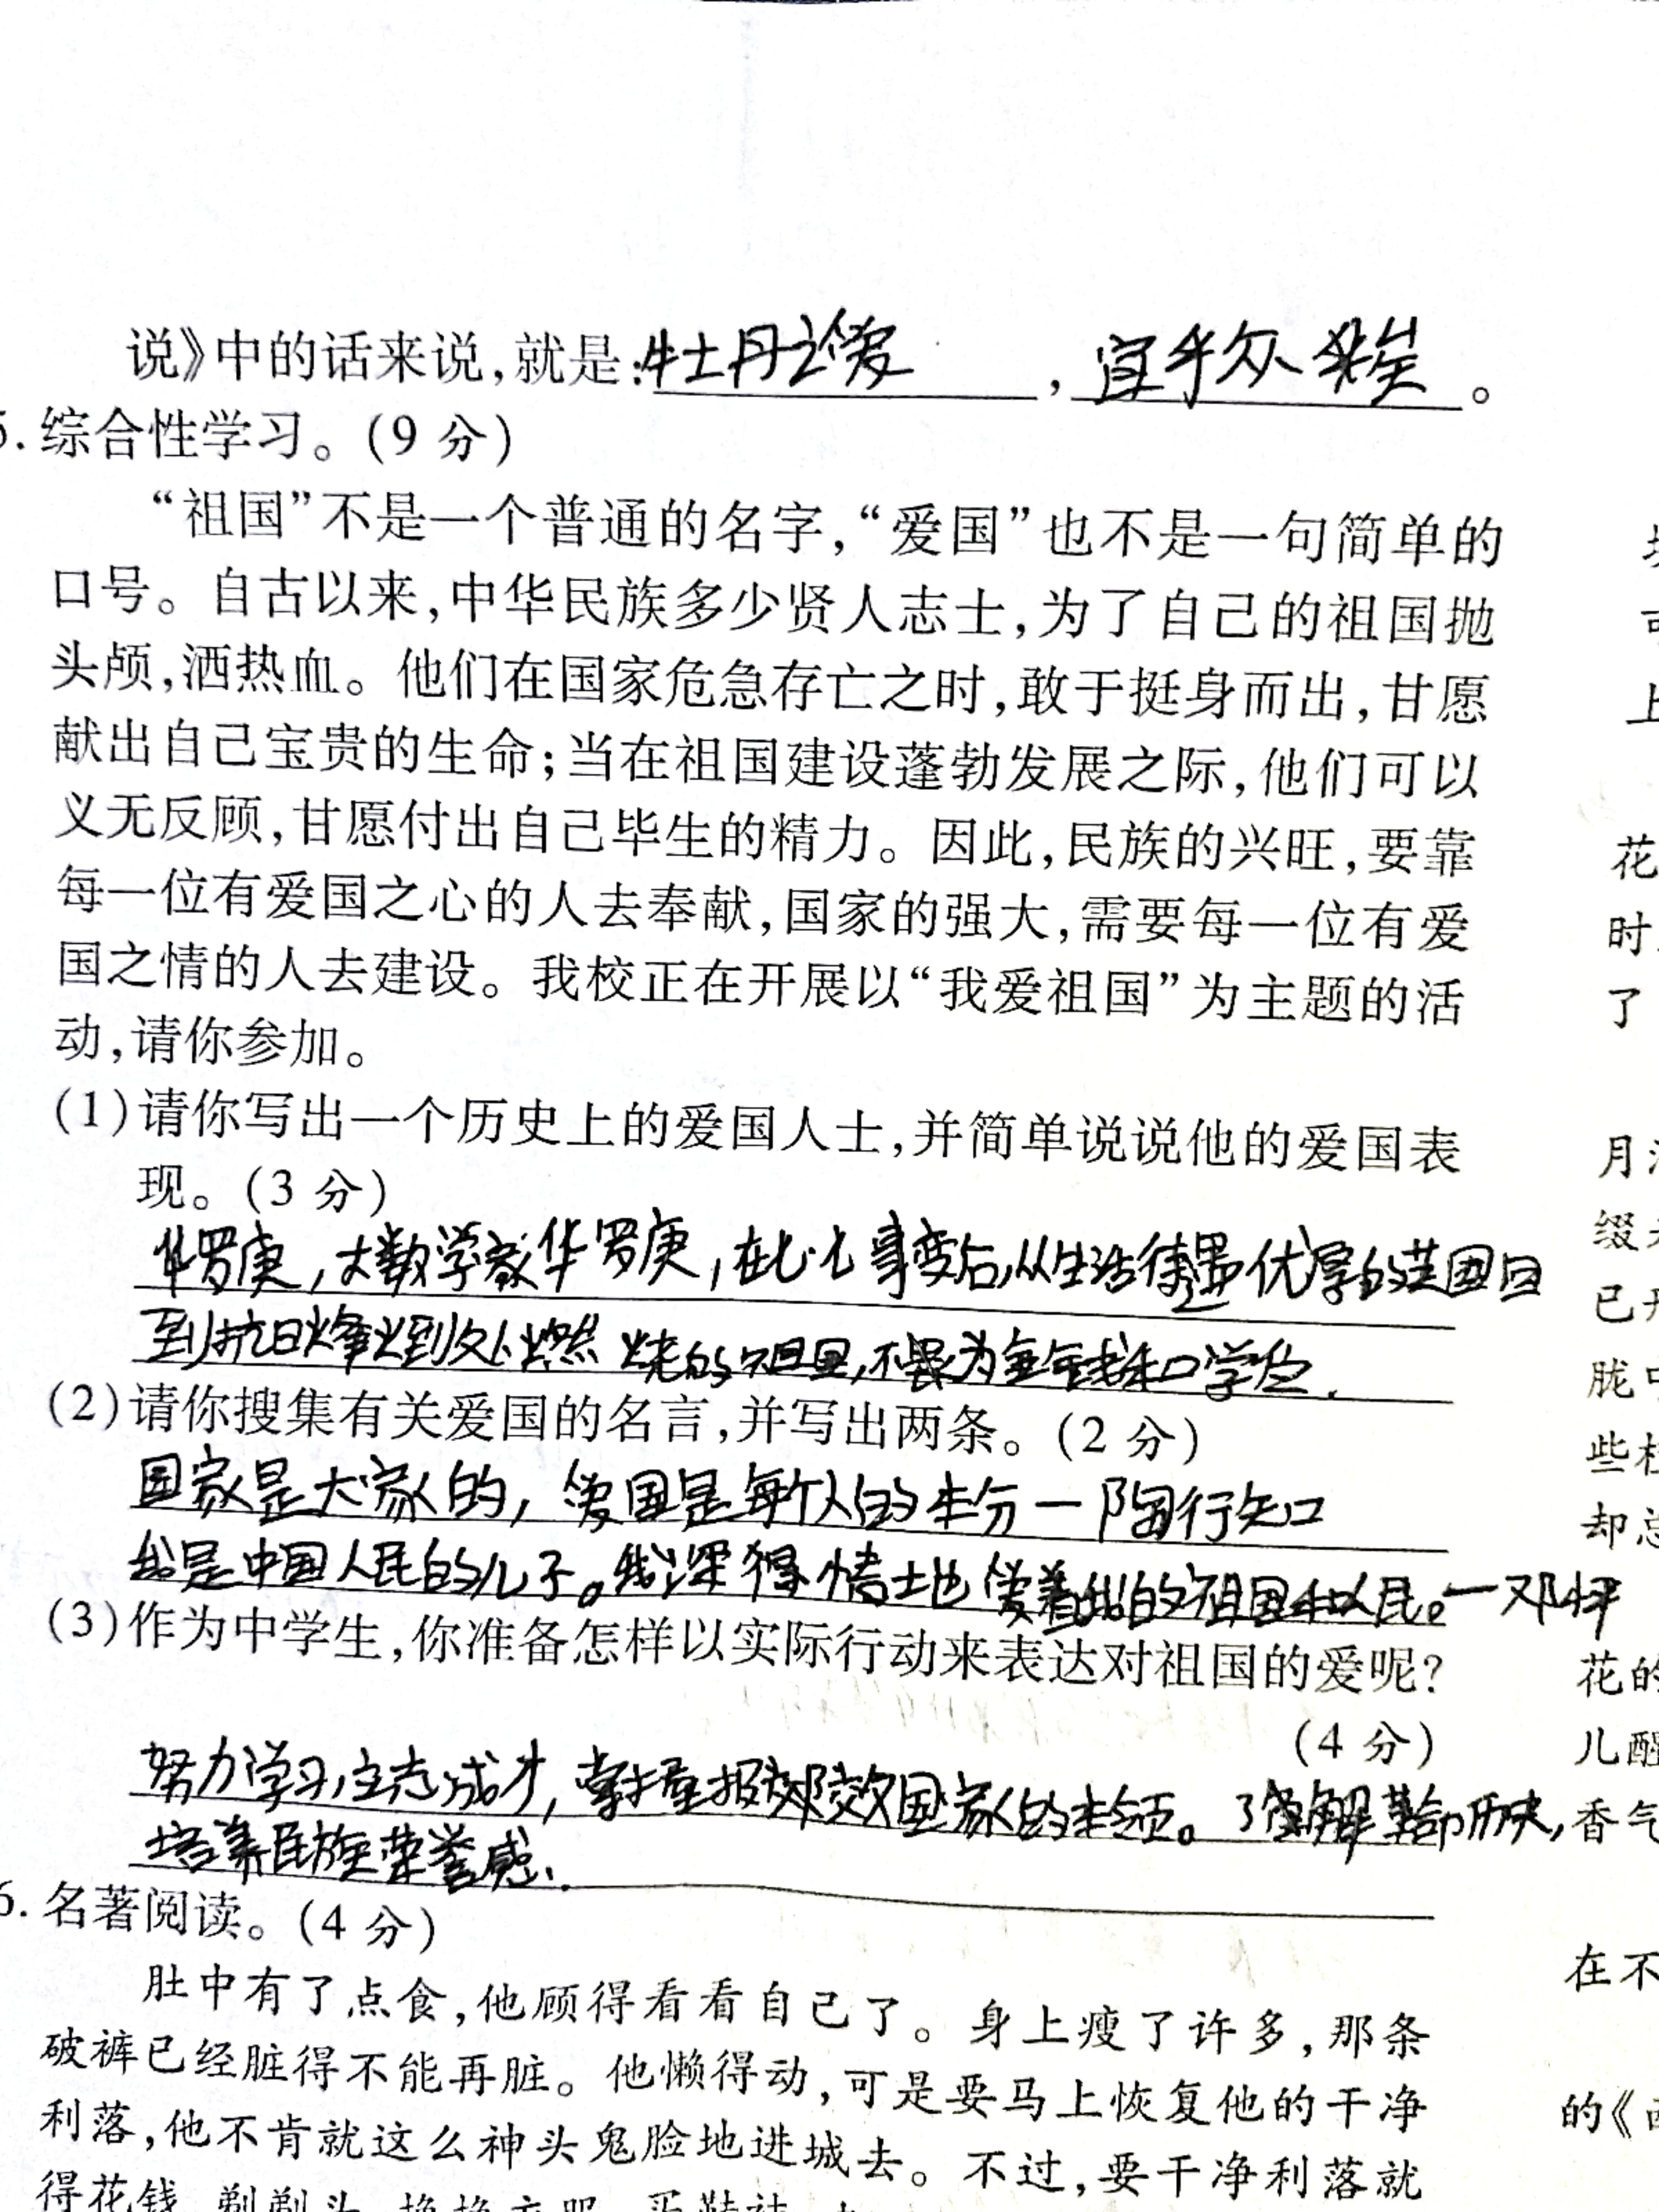 说》中的话来说,就是:牡丹之爱,宜乎众矣。
5.综合性学习。(9 分)
“祖国”不是一个普通的名字,“爱国”也不是一句简单的
口号。自古以来,中华民族多少贤人志士,为了自己的祖国抛
头颅,洒热血。他们在国家危急存亡之时,敢于挺身而出,甘愿
献出自己宝贵的生命;当在祖国建设蓬勃发展之际,他们可以
义无反顾,甘愿付出自己毕生的精力。因此,民族的兴旺,要靠
每一位有爱国之心的人去奉献,国家的强大,需要每一位有爱
国之情的人去建设。我校正在开展以“我爱祖国”为主题的活
动,请你参加。
(1)请你写出一个历史上的爱国人士,并简单说说他的爱国表
现。(3 分)
华罗庚,大数学家华罗庚,在七·七事变后,从生活待遇优厚的英国回
到抗日烽火到处燃烧的祖国,不畏为金钱和学位.
(2)请你搜集有关爱国的名言,并写出两条。(2 分)
国家是大家的,爱国是每个人的本分一陶行知
我是中国人民的儿子。我深得情土地爱着我的祖国和人民。一邓坪
(3)作为中学生,你准备怎样以实际行动来表达对祖国的爱呢?
(4 分)
努力学习,立志成才,掌握报效国家的本领。了解革命历史,
培养民族荣誉感.
6.名著阅读。(4 分)
肚中有了点食,他顾得看看自己了。身上瘦了许多,那条
破裤已经脏得不能再脏。他懒得动,可是要马上恢复他的干净
利落,他不肯就这么神头鬼脸地进城去。不过,要干净利落就
得花钱,剃剃头,换换衣服,买鞋袜,
花
时
了
月
缀
已
胧
些
却
花的
儿醒
香气
在不
的《